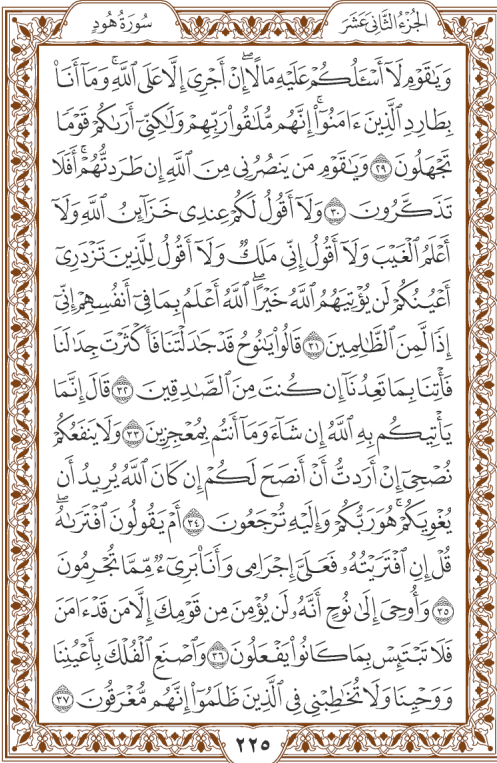 الجزء الثاني عشر
سورة هود
وَيَٰقَوْمِ لَآ أَسْـَٔلُكُمْ عَلَيْهِ مَالًا ۖ إِنْ أَجْرِىَ إِلَّا عَلَى ٱللَّهِ ۚ وَمَآ أَنَا۠
بِطَارِدِ ٱلَّذِينَ ءَامَنُوٓا۟ ۚ إِنَّهُم مُّلَٰقُوا۟ رَبِّهِمْ وَلَٰكِنِّىٓ أَرَىٰكُمْ قَوْمًا
تَجْهَلُونَ ٢٩ وَيَٰقَوْمِ مَن يَنصُرُنِى مِنَ ٱللَّهِ إِن طَرَدتُّهُمْ ۚ أَفَلَا
تَذَكَّرُونَ ٣٠ وَلَآ أَقُولُ لَكُمْ عِندِى خَزَآئِنُ ٱللَّهِ وَلَآ
أَعْلَمُ ٱلْغَيْبَ وَلَآ أَقُولُ إِنِّى مَلَكٌ وَلَآ أَقُولُ لِلَّذِينَ تَزْدَرِىٓ
أَعْيُنُكُمْ لَن يُؤْتِيَهُمُ ٱللَّهُ خَيْرًا ۖ ٱللَّهُ أَعْلَمُ بِمَا فِىٓ أَنفُسِهِمْ ۖ إِنِّىٓ
إِذًا لَّمِنَ ٱلظَّٰلِمِينَ ٣١ قَالُوا۟ يَٰنُوحُ قَدْ جَٰدَلْتَنَا فَأَكْثَرْتَ جِدَٰلَنَا
فَأْتِنَا بِمَا تَعِدُنَآ إِن كُنتَ مِنَ ٱلصَّٰدِقِينَ ٣٢ قَالَ إِنَّمَا
يَأْتِيكُم بِهِ ٱللَّهُ إِن شَآءَ وَمَآ أَنتُم بِمُعْجِزِينَ ٣٣ وَلَا يَنفَعُكُمْ
نُصْحِىٓ إِنْ أَرَدتُّ أَنْ أَنصَحَ لَكُمْ إِن كَانَ ٱللَّهُ يُرِيدُ أَن
يُغْوِيَكُمْ ۚ هُوَ رَبُّكُمْ وَإِلَيْهِ تُرْجَعُونَ ٣٤ أَمْ يَقُولُونَ ٱفْتَرَىٰهُ ۖ
قُلْ إِنِ ٱفْتَرَيْتُهُۥ فَعَلَىَّ إِجْرَامِى وَأَنَا۠ بَرِىٓءٌ مِّمَّا تُجْرِمُونَ
٣٥ وَأُوحِىَ إِلَىٰ نُوحٍ أَنَّهُۥ لَن يُؤْمِنَ مِن قَوْمِكَ إِلَّا مَن قَدْ ءَامَنَ
فَلَا تَبْتَئِسْ بِمَا كَانُوا۟ يَفْعَلُونَ ٣٦ وَٱصْنَعِ ٱلْفُلْكَ بِأَعْيُنِنَا
وَوَحْيِنَا وَلَا تُخَٰطِبْنِى فِى ٱلَّذِينَ ظَلَمُوٓا۟ ۚ إِنَّهُم مُّغْرَقُونَ ٣٧
٢٢٥